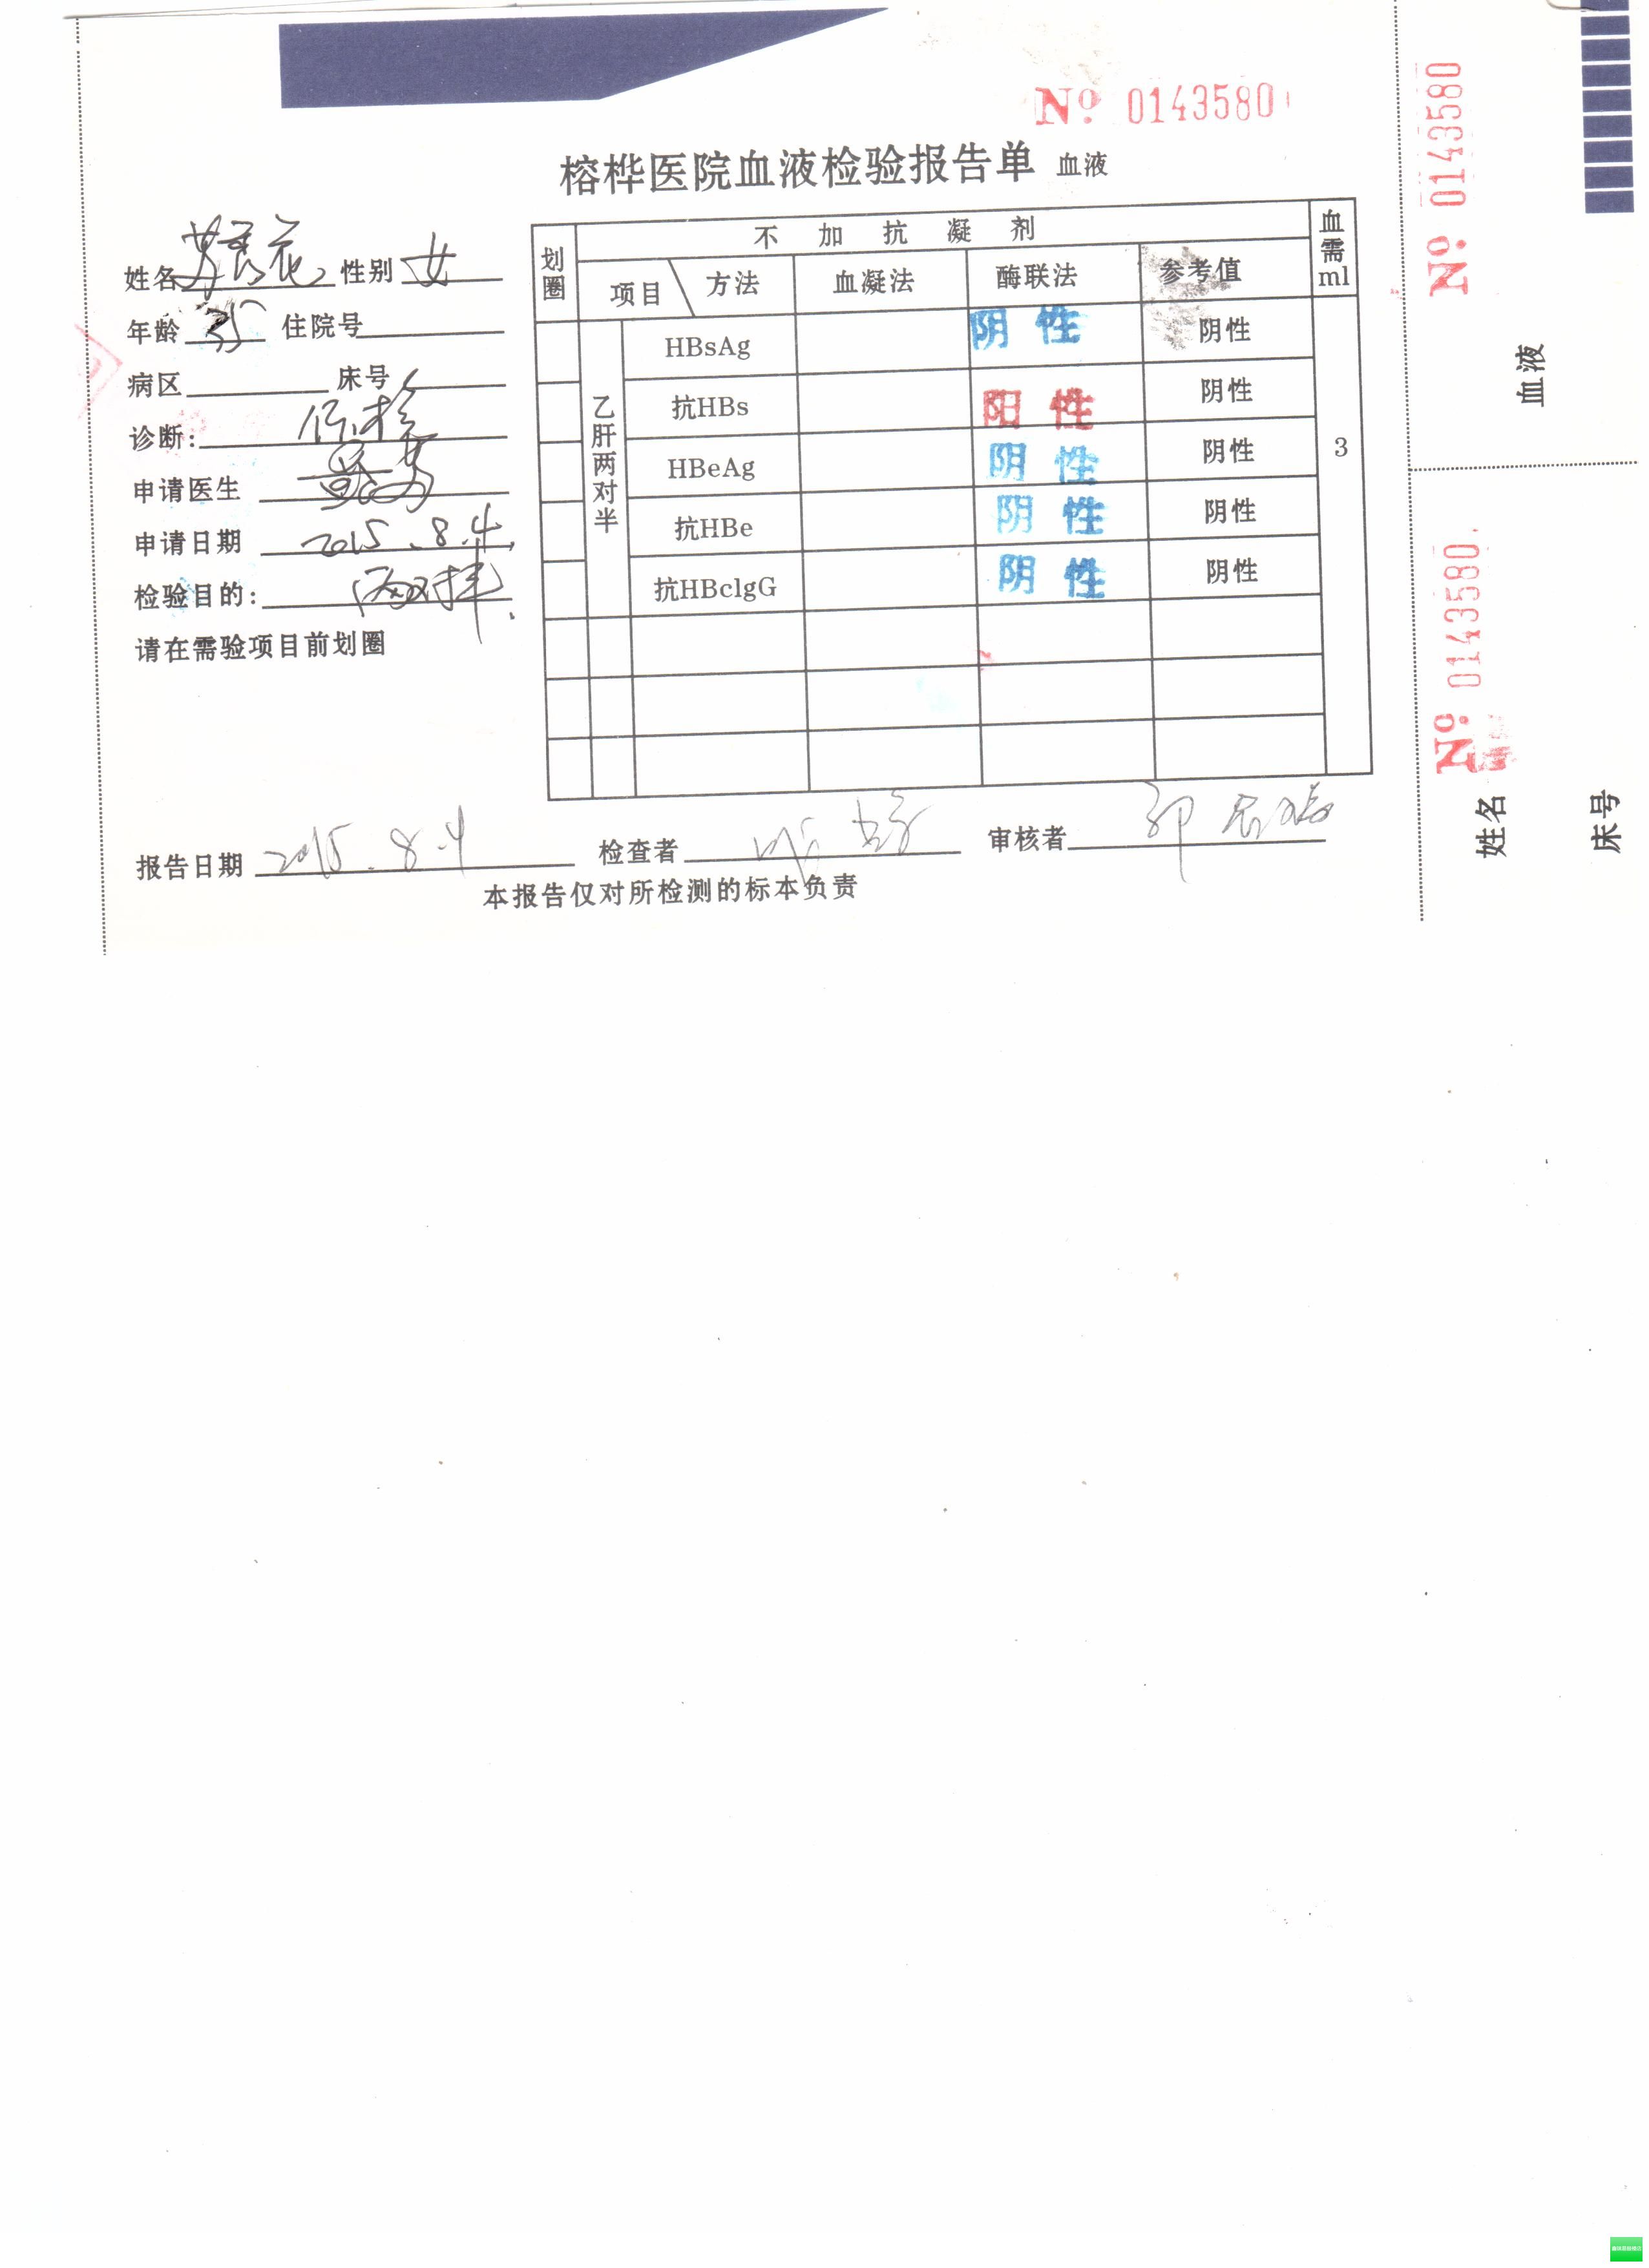 No 0143580
榕桦医院血液检验报告单 血液
姓名 性别 女
年龄 住院号
病区 床号
诊断:
申请医生
申请日期 2015.8.4
检验目的: 两对半
请在需验项目前划圈
划圈 不加抗凝剂 血需ml
项目 方法 血凝法 酶联法 参考值
乙肝两对半
HBsAg 阴性 阴性
抗HBs 阳性 阴性
HBeAg 阴性 阴性
抗HBe 阴性 阴性
抗HBclgG 阴性 阴性
3
报告日期 2015.8.4 检查者 审核者
本报告仅对所检测的标本负责
No 0143580
血液
No 0143580
姓名
床号